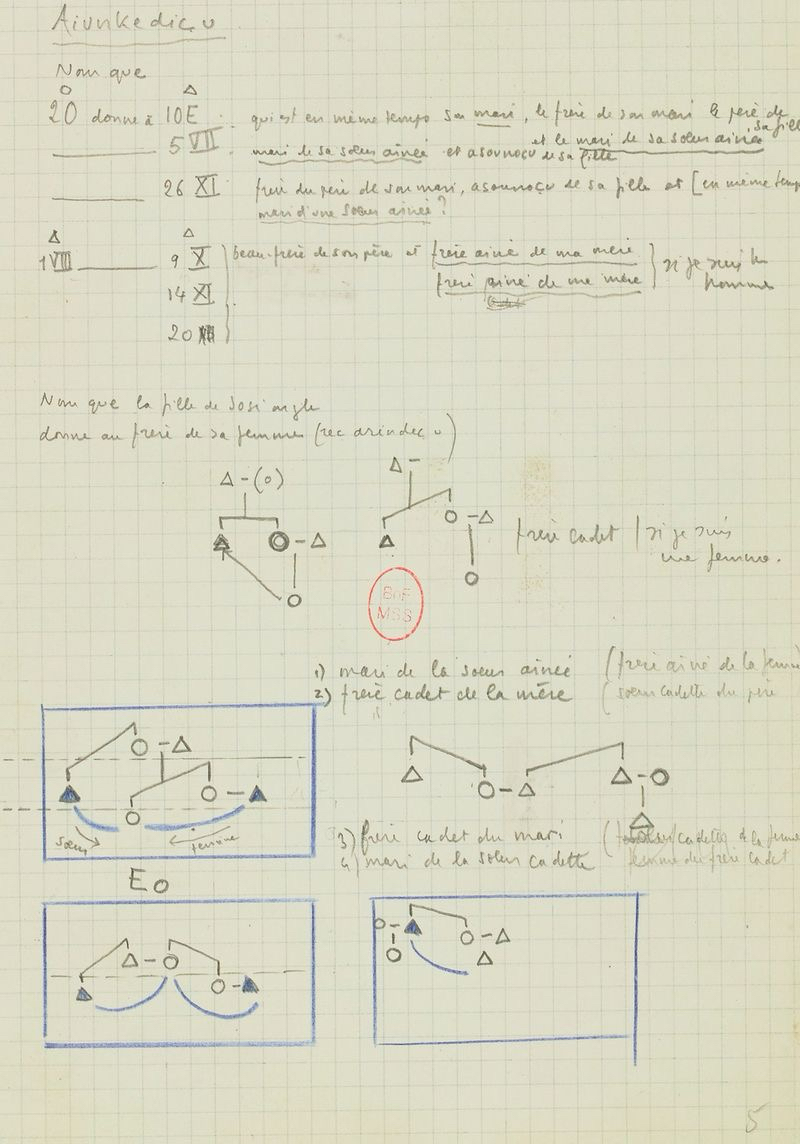 Aiunkediçu
Nom que
20 donne à 10 E qui est en même temps son mari, le frère de son mari le père de sa fille
5 VII mari de sa sœur ainée et asounoçu de sa fille et le mari de sa sœur ainée
26 XI frère du père de son mari, asounoçu de sa fille et [en même temps
mari d'une sœur ainée ?
1 VIII 9 X beau-frère de son père et frère ainé de ma mère
14 XI frère ainé de ma mère si je suis un homme
20
Nom que la fille de
donne au frère de sa femme
frère cadet si je suis
une femme.
BnF
MSS
1) mari de la sœur ainée (frère ainé de la femme
2) frère cadet de la mère (sœur cadette du père
3) frère cadet du mari cadette de la femme
4) mari de la sœur cadette femme du frère cadet
sœur femme
E o
5